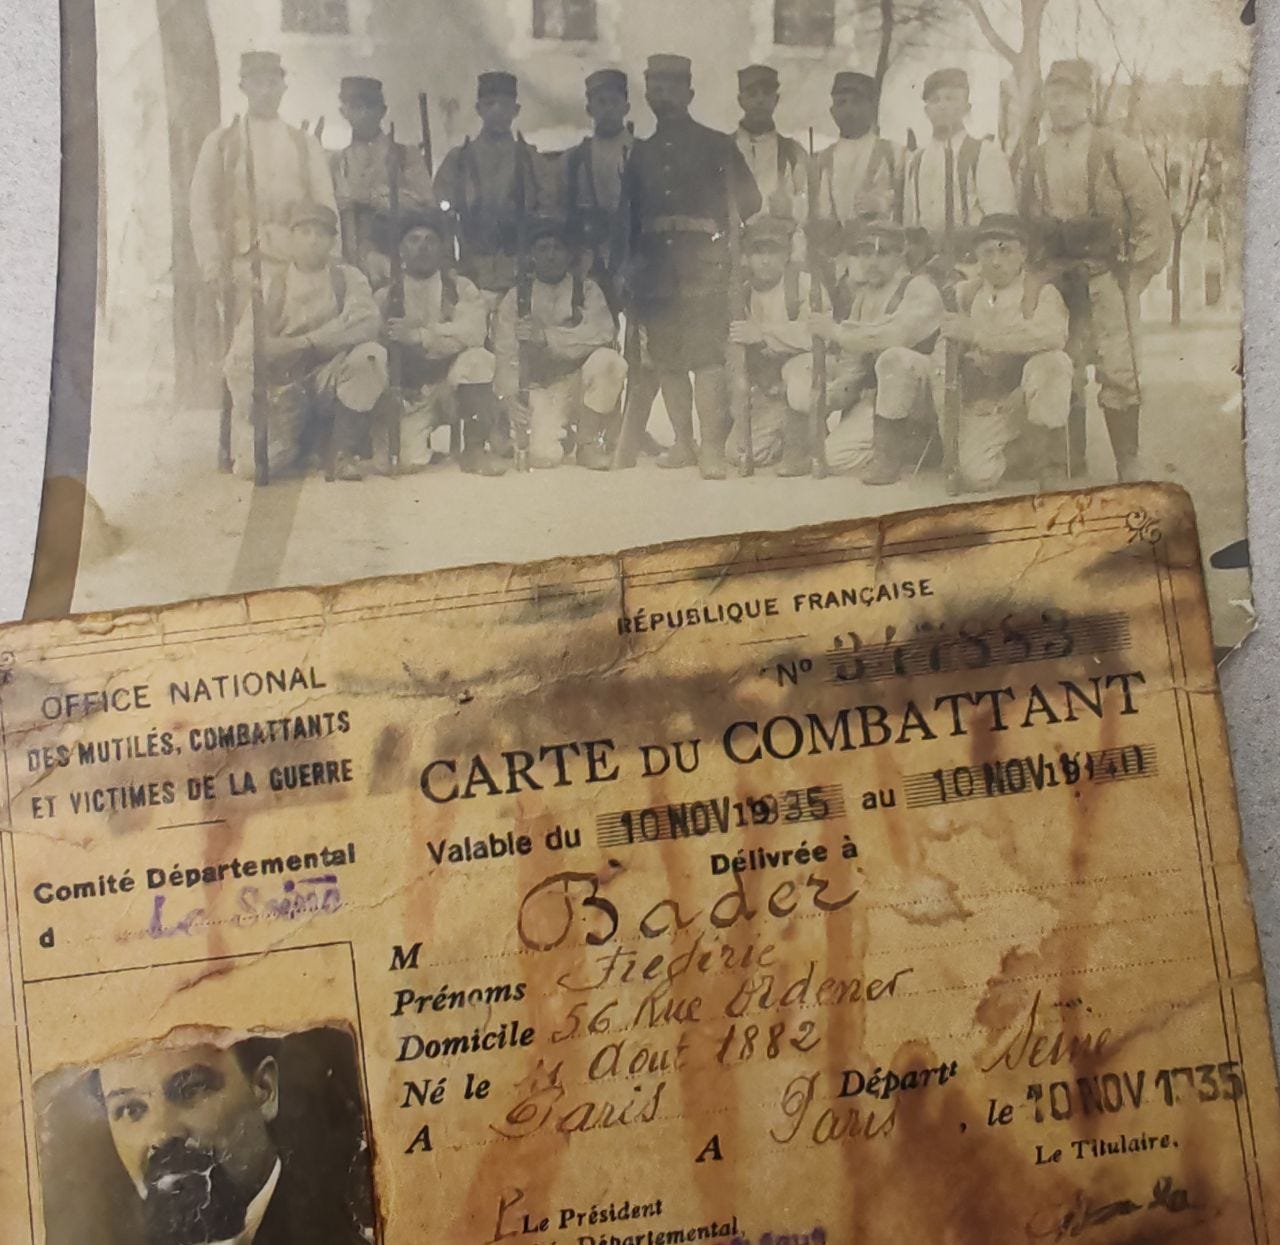 RÉPUBLIQUE FRANÇAISE
OFFICE NATIONAL
DES MUTILÉS, COMBATTANTS
ET VICTIMES DE LA GUERRE
Nº
CARTE DU COMBATTANT
Valable du 10 NOV 1935 au 10 NOV 1940
Délivrée à
Comité Départemental
d La Seine
M Bader
Prénoms Frederic
Domicile 56 Rue Ordener
Né le Aout 1882
A Paris Départt Seine
A Paris, le 10 NOV 1935
Le Titulaire,
Le Président
Départemental,